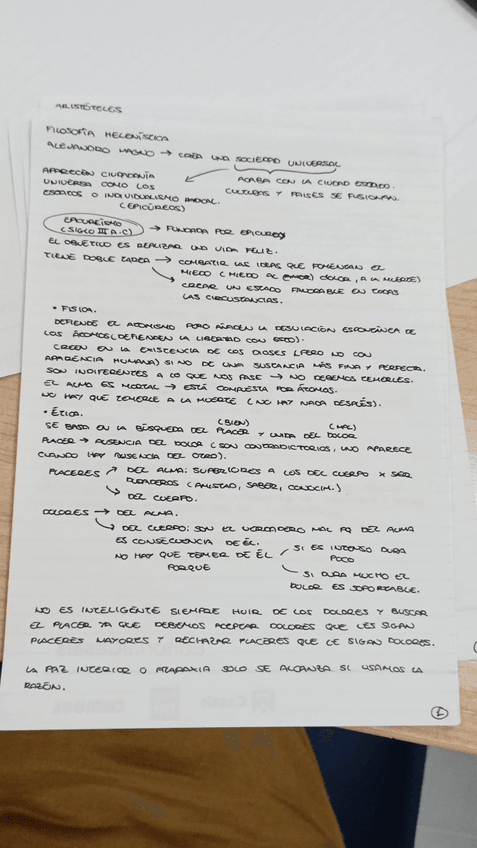 ARISTÓTELES
FILOSOFÍA HELENÍSTICA
ALEJANDRO MAGNO → CREA UNA SOCIEDAD UNIVERSAL
APARECEN CIUDADANÍA
UNIVERSAL COMO LOS
ESTOICOS O INDIVIDUALISMO RADICAL.
(EPICÚREOS)
ACABA CON LA CIUDAD ESTADO.
CULTURAS Y PAISES SE FUSIONAN.
EPICUREISMO
(SIGLO III A.C) → FUNDADA POR EPICUREO
EL OBJETICO ES REALIZAR UNA VIDA FELIZ.
TIENE DOBLE TAREA → COMBATIR LAS IDEAS QUE FOMENTAN EL
MIEDO (MIEDO AL DOLOR, A LA MUERTE)
CREAR UN ESTADO FAVORABLE EN TODAS
LAS CIRCUSTANCIAS.
• FISICA.
DEFIENDE EL ATOMISMO PERO AÑADEN LA DESVIACIÓN ESPONTÁNEA DE
LOS ÁTOMOS (DEFIENDEN LA LIBERTAD CON ESTO).
CREEN EN LA EXISTENCIA DE LOS DIOSES (PERO NO CON
APARIENCIA HUMANA) SI NO DE UNA SUSTANCIA MÁS FINA Y PERFECTA.
SON INDIFERENTES A LO QUE NOS PASE → NO DEBEMOS TEMERLES.
EL ALMA ES MORTAL → ESTÁ COMPUESTA POR ÁTOMOS.
NO HAY QUE TEMERLE A LA MUERTE (NO HAY NADA DESPUÉS).
• ÉTICA.
(BIEN) (MAL)
SE BASA EN LA BÚSQUEDA DEL PLACER Y HUIDA DEL DOLOR
PLACER → AUSENCIA DEL DOLOR (SON CONTRADICTORIOS, UNO APARECE
CUANDO HAY AUSENCIA DEL OTRO).
PLACERES → DEL ALMA: SUPERIORES A LOS DEL CUERPO X SER
DURADEROS (AMISTAD, SABER, CONOCIM.)
DEL CUERPO.
DOLORES → DEL ALMA.
DEL CUERPO: SON EL VERDADERO MAL PQ DEL ALMA
ES CONSECUENCIA DE ÉL.
NO HAY QUE TEMER DE ÉL
PORQUE
SI ES INTENSO DURA
POCO
SI DURA MUCHO EL
DOLOR ES SOPORTABLE.
NO ES INTELIGENTE SIEMPRE HUIR DE LOS DOLORES Y BUSCAR
EL PLACER YA QUE DEBEMOS ACEPTAR DOLORES QUE LES SIGAN
PLACERES MAYORES Y RECHAZAR PLACERES QUE LE SIGAN DOLORES.
LA PAZ INTERIOR O ATARAXIA SOLO SE ALCANZA SI USAMOS LA
RAZÓN.